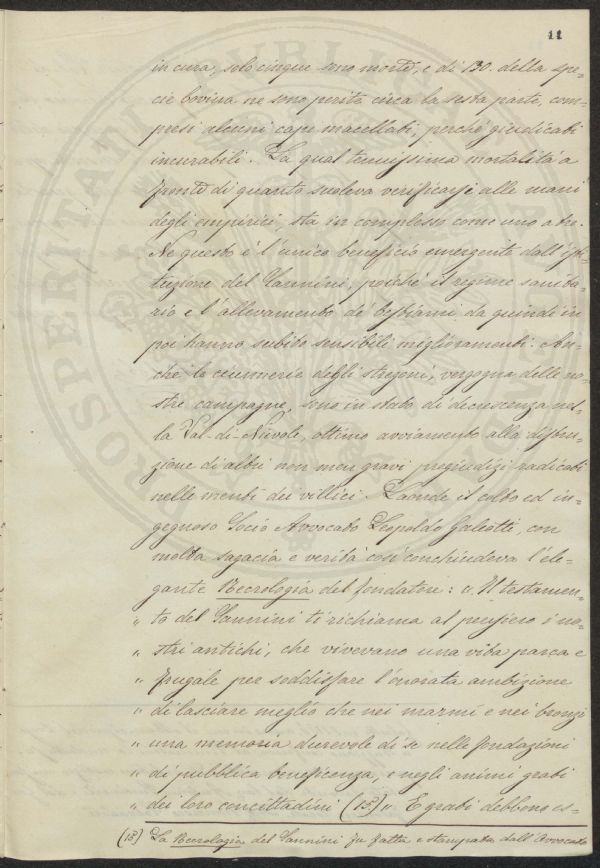 11
in cura, solo cinque sono morte, e di 130. della spe=
cie bovina ne sono perite circa la sesta parte, com=
presi alcuni capi macellati, perché giudicati
incurabili. La qual tenuissima mortalità a
fronte di quanto soleva verificarsi alle mani
degli empirici, sta in complesso come uno a tre.
Ne questo è l'unico beneficio emergente dall'isti=
tuzione del Vannini, poiché il regime sanita=
rio e l'allevamento de' bestiami da quindi in
poi hanno subito sensibili miglioramenti. An=
che le ciurmerie degli stregoni, vergogna delle no=
stre campagne, sono in stato di decrescenza nel=
la Val-di-Nievole, ottimo avviamento alla distru=
zione di altri non men gravi pregiudizi radicati
nelle menti dei villici. Laonde il culto ed in=
gegnoso Socio Avvocato Leopoldo Galeotti, con
molta sagacia e verità così conchiudeva l'ele=
gante Necrologia del fondatore: « Il testamen=
" to del Vannini ti richiama al pensiero i no=
" stri antichi, che vivevano una vita parca e
" frugale per soddisfare l'onorata ambizione
" di lasciare meglio che nei marmi e nei bronzi
" una memoria durevole di se nelle fondazioni
" di pubblica beneficenza, e negli animi grati
" dei loro concittadini (15) » E grati debbono es=
(15) La Necrologia del Vannini fu fatta, e stampata dall'Avvocato
PROSPERITATI PUBLICAE